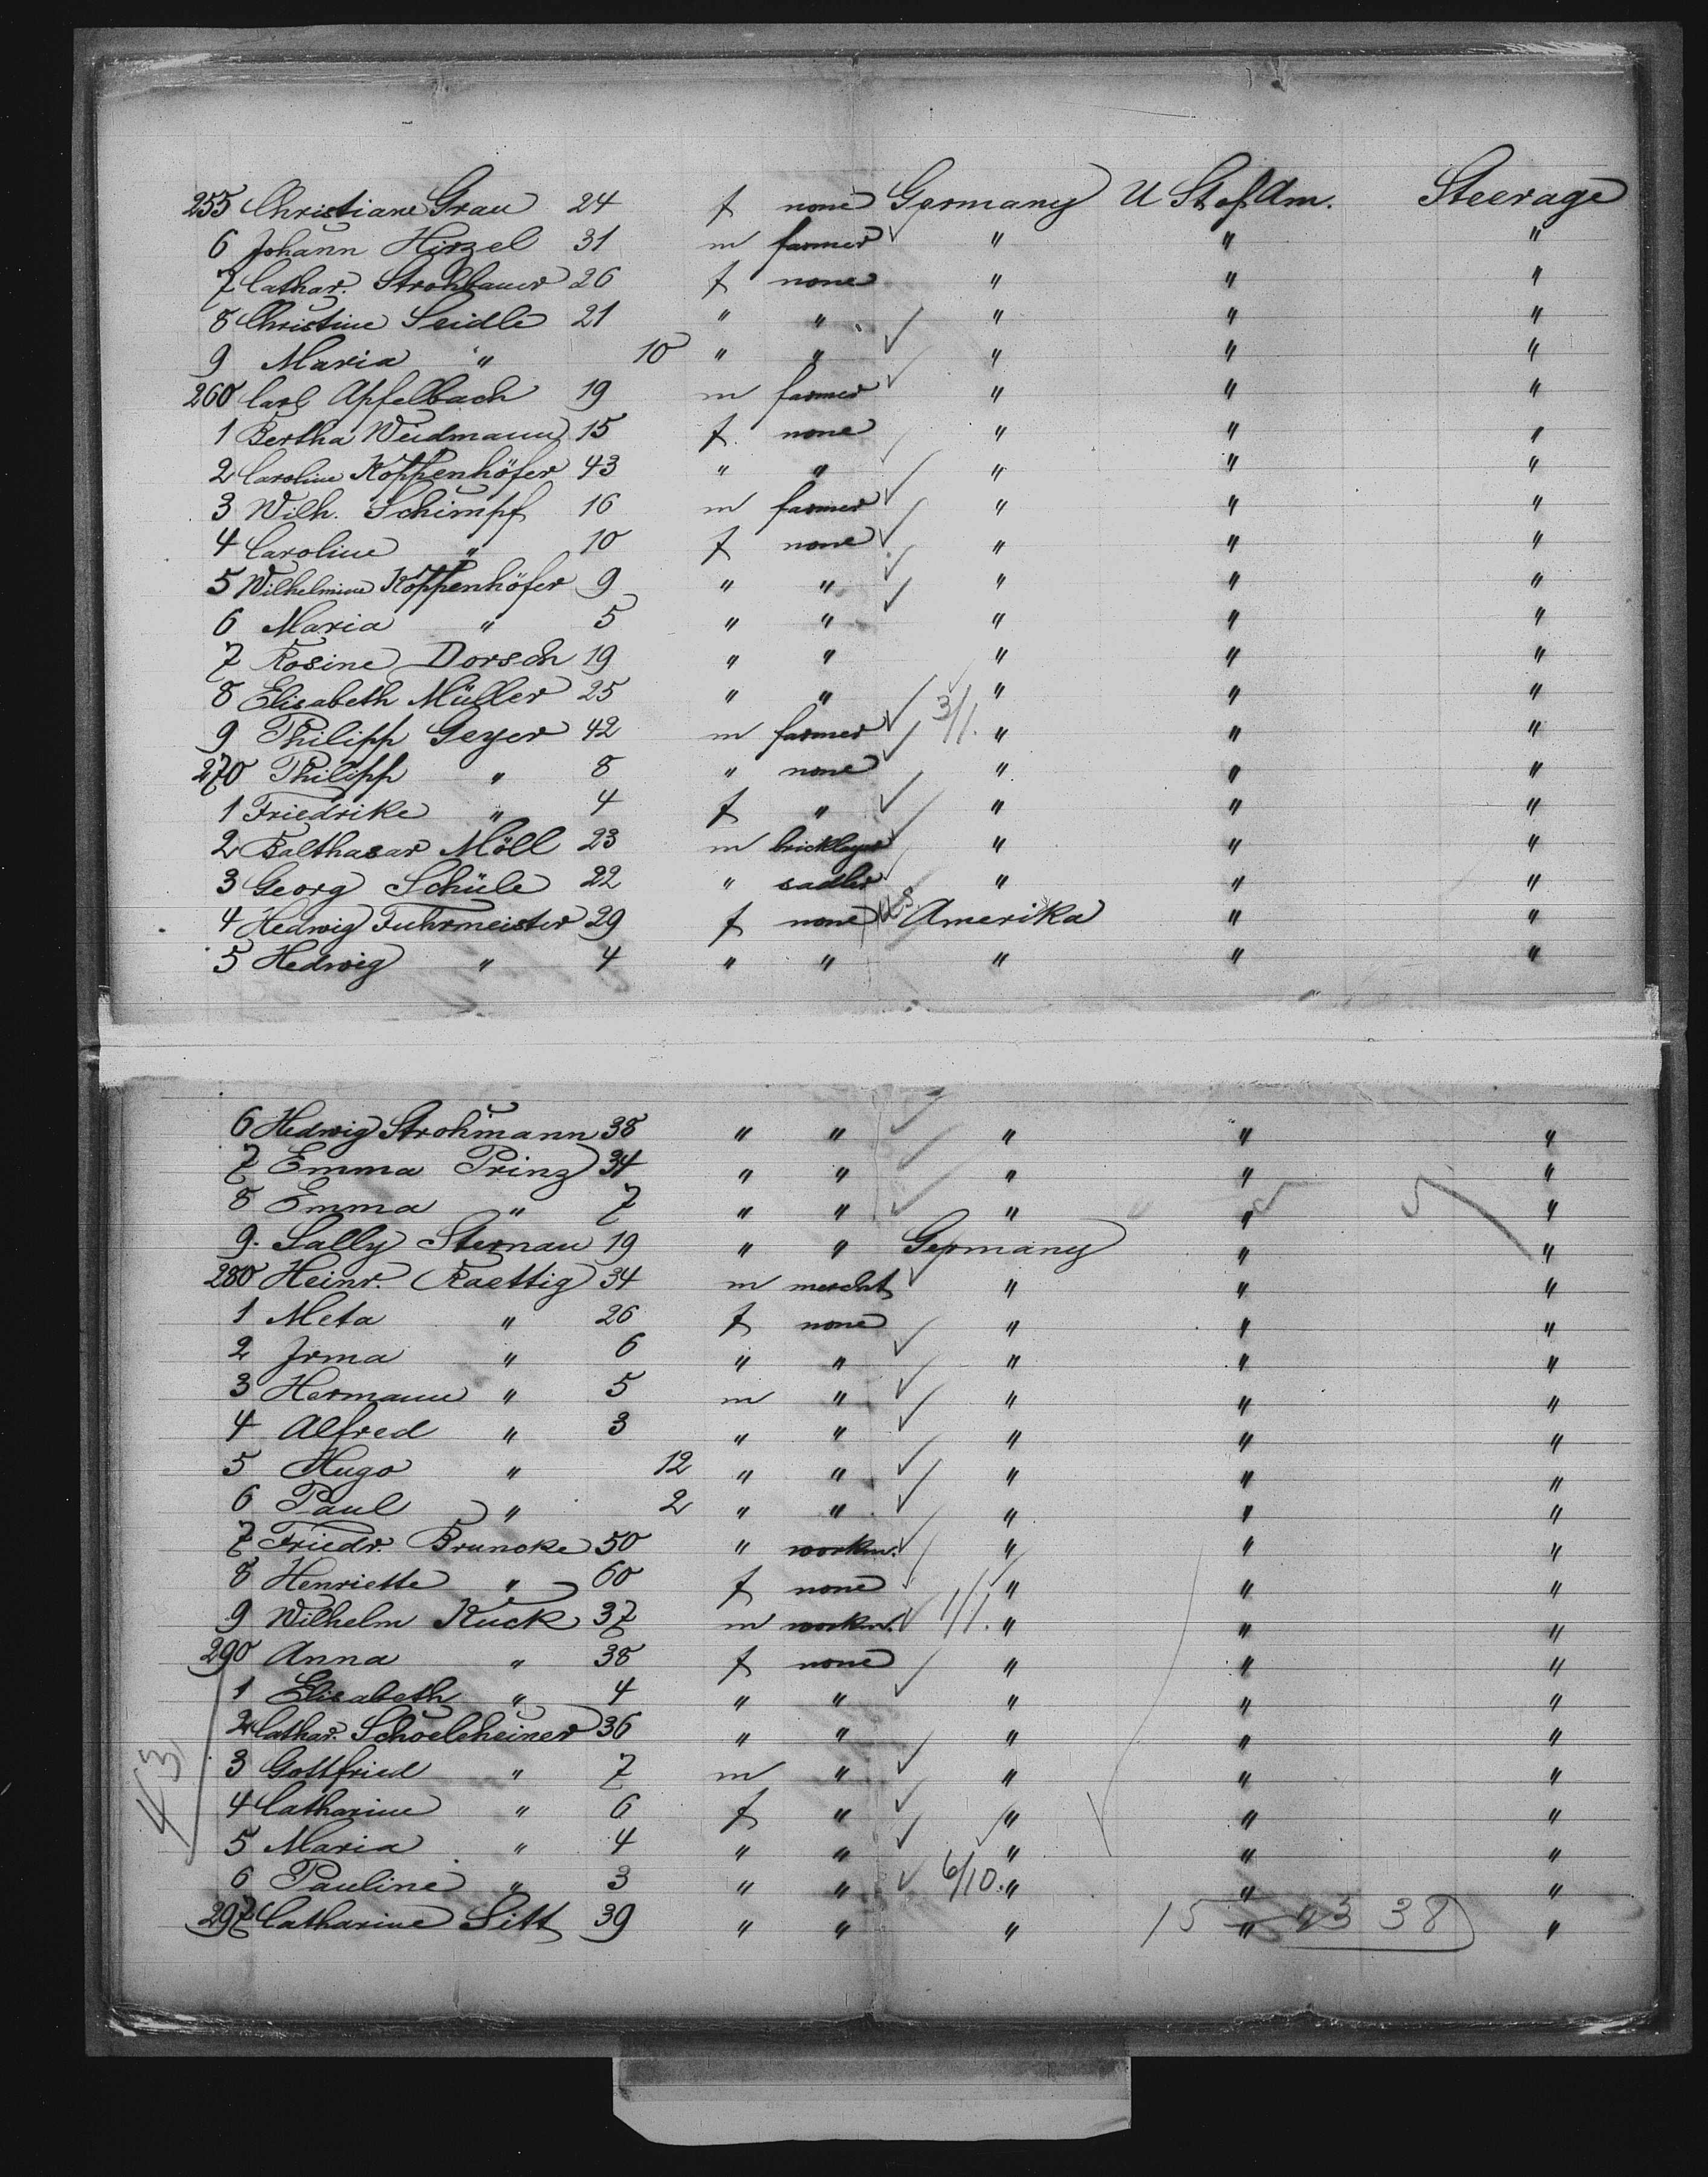 255 Christiane Grau 24 f none Germany U St of Am. Steerage
6 Johann Hirzel 31 m farmer " " "
7 Cathar. Strohbauer 26 f none " " "
8 Christine Seidle 21 " " " " "
9 Maria " 10 " " " " "
260 Carl Apfelbach 19 m farmer " " "
1 Bertha Weidmann 15 f none " " "
2 Caroline Koppenhöfer 43 " " " " "
3 Wilh. Schimpf 16 m farmer " " "
4 Caroline " 10 f none " " "
5 Wilhelmine Koppenhöfer 9 " " " " "
6 Maria " 5 " " " " "
7 Rosine Dorsch 19 " " " " "
8 Elisabeth Müller 25 " " " " "
9 Philipp Geyer 42 m farmer 3/1. " " "
270 Philipp " 8 " none " " "
1 Friedrike " 4 f " " " "
2 Balthasar Möll 23 m bricklayer " " "
3 Georg Schüle 22 " sadler " " "
4 Hedwig Fuhrmeister 29 f none U.S. Amerika " "
5 Hedwig " 4 " " " " "
6 Hedwig Strohmann 38 " " " " "
7 Emma Prinz 34 " " " " "
8 Emma " 7 " " " " "
9. Sally Sternau 19 " " Germany " "
280 Heinr. Raettig 34 m mercht " " "
1 Meta " 26 f none " " "
2 Irma " 6 " " " " "
3 Hermann " 5 m " " " "
4 Alfred " 3 " " " " "
5 Hugo " 12 " " " " "
6 Paul " 2 " " " " "
7 Friedr. Bruncke 50 " workm. " " "
8 Henriette " 60 f none " " "
9 Wilhelm Kuck 37 m workm. 1/1. " " "
290 Anna " 38 f none " " "
1 Elisabeth " 4 " " " " "
2 Cathar. Schoelcheiner 36 " " " " "
3 Gottfried " 7 m " " " "
4 Catharine " 6 f " " " "
5 Maria " 4 " " " " "
6 Pauline " 3 " " 6/10. " " "
297 Catharine Sitt 39 " " " " "
43
15 23 38